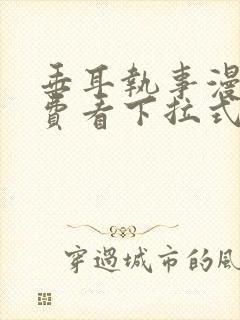 垂耳執事漫
費看下拉式
穿過城市的風